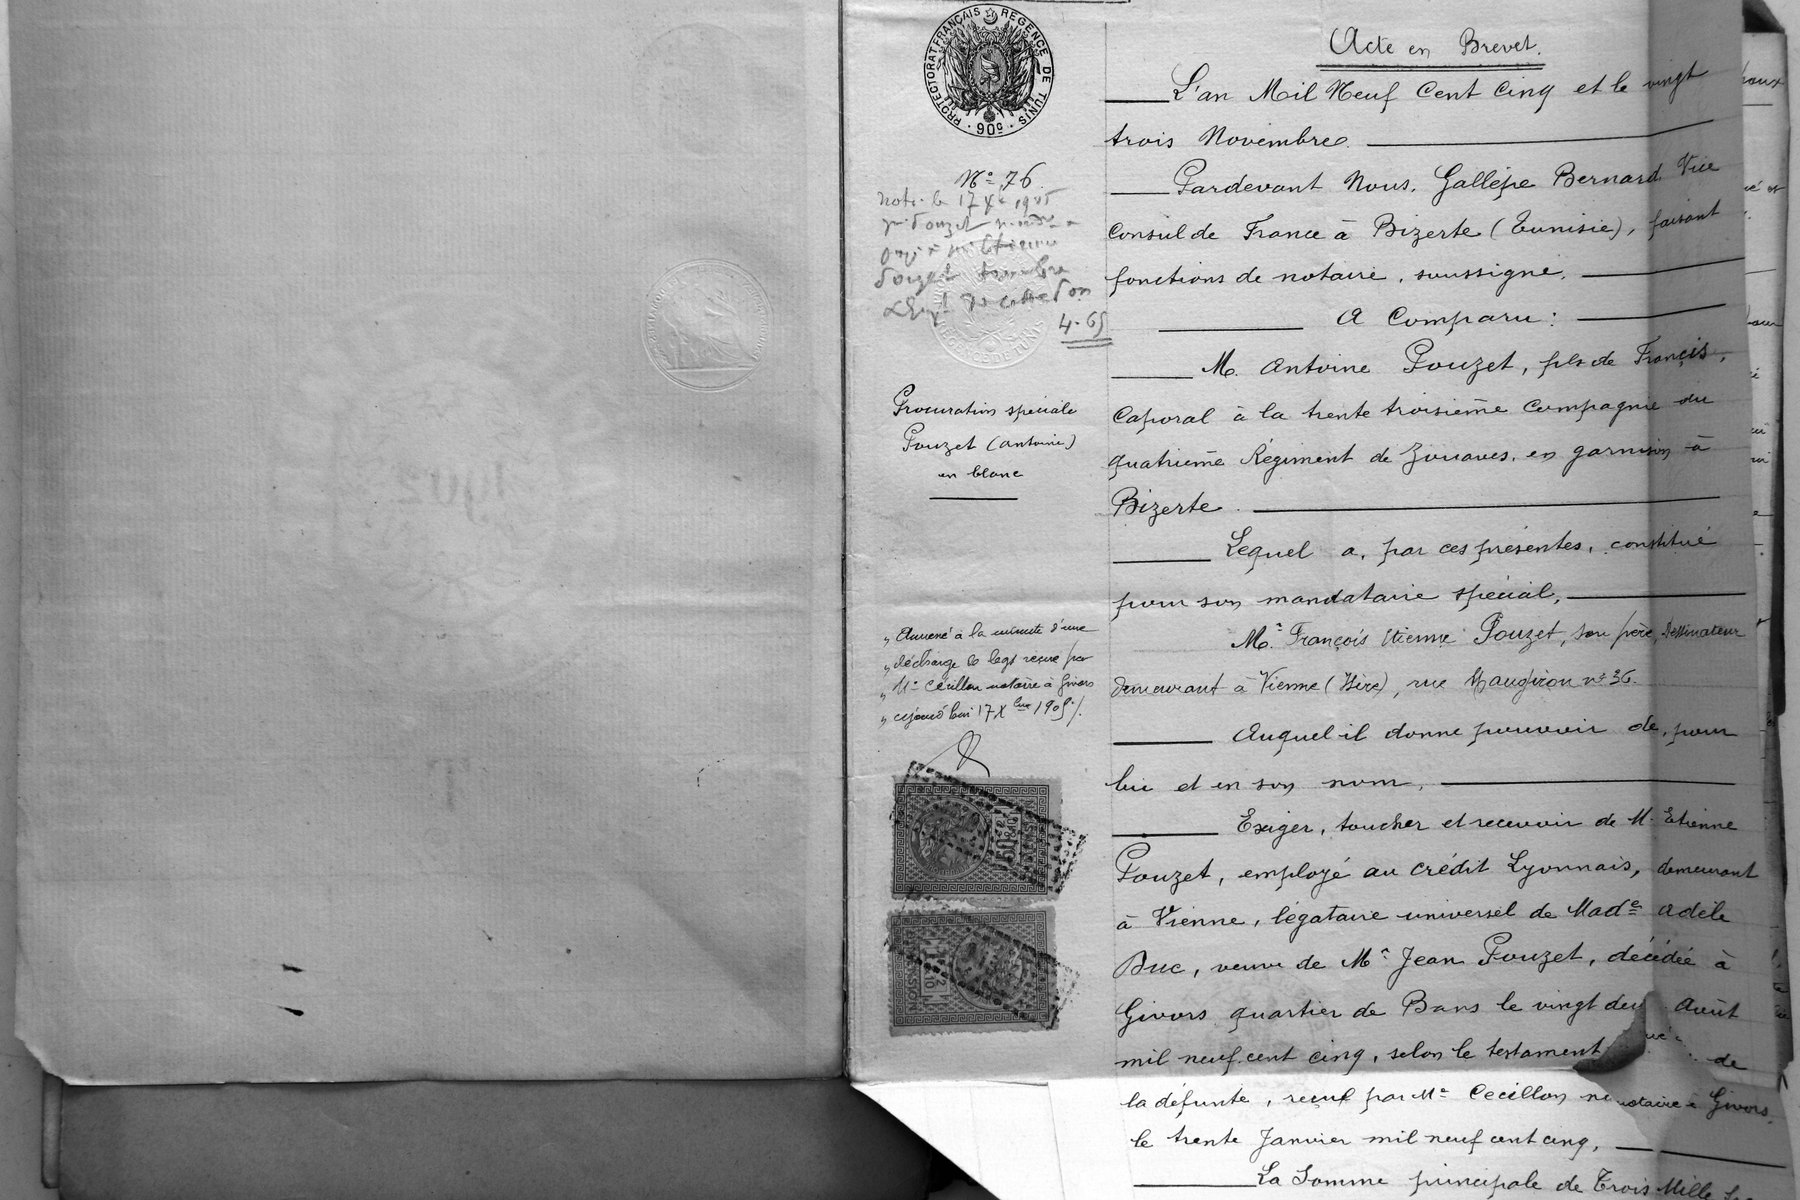 PROTECTORAT FRANÇAIS RÉGENCE DE TUNIS
90c
Nº 76
note le 17 Xe 1905
4.65
Procuration spéciale
Pouzet (Antoine)
en blanc
„ Annexé à la minute d'une
„ décharge de legs reçue par
„ Me Cécillon notaire à Givors
„ cejourd'hui 17 Xbre 1905 /.
Acte en Brevet.
L'an Mil Neuf Cent Cinq et le vingt
trois Novembre.
Pardevant Nous, Gallèpe Bernard Vice
Consul de France à Bizerte (Tunisie), faisant
fonctions de notaire, soussigné,
A Comparu :
M. Antoine Pouzet, fils de François,
Caporal à la trente troisième Compagnie du
quatrième Régiment de Zouaves, en garnison à
Bizerte.
Lequel a, par ces présentes, constitué
pour son mandataire spécial,
Mr François Etienne Pouzet, son père, dessinateur
demeurant à Vienne (Isère), rue Maugiron nº 36.
Auquel il donne pouvoir de, pour
lui et en son nom,
Exiger, toucher et recevoir de M. Etienne
Pouzet, employé au crédit Lyonnais, demeurant
à Vienne, légataire universel de Made Adèle
Duc, veuve de Mr Jean Pouzet, décédée à
Givors quartier de Bans le vingt deux Août
mil neuf cent cinq, selon le testament de
la défunte, reçu par Me Cecillon notaire à Givors
le trente Janvier mil neuf cent cinq,
La Somme principale de Trois Mille